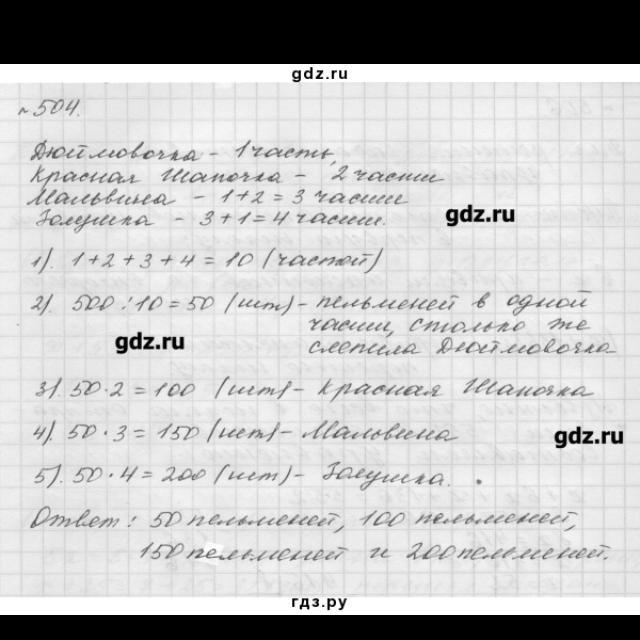 gdz.ru
№504.
Дюймовочка - 1 часть,
Красная Шапочка - 2 части
Мальвина - 1+2=3 части
Золушка - 3+1=4 части.
gdz.ru
1). 1+2+3+4=10 (частей)
2). 500:10=50 (шт) - пельменей в одной
части, столько же
gdz.ru
слепила Дюймовочка
3). 50·2=100 (шт) - Красная Шапочка
4). 50·3=150 (шт) - Мальвина
gdz.ru
5). 50·4=200 (шт) - Золушка.
Ответ: 50 пельменей, 100 пельменей,
150 пельменей и 200 пельменей.
гдз.ру